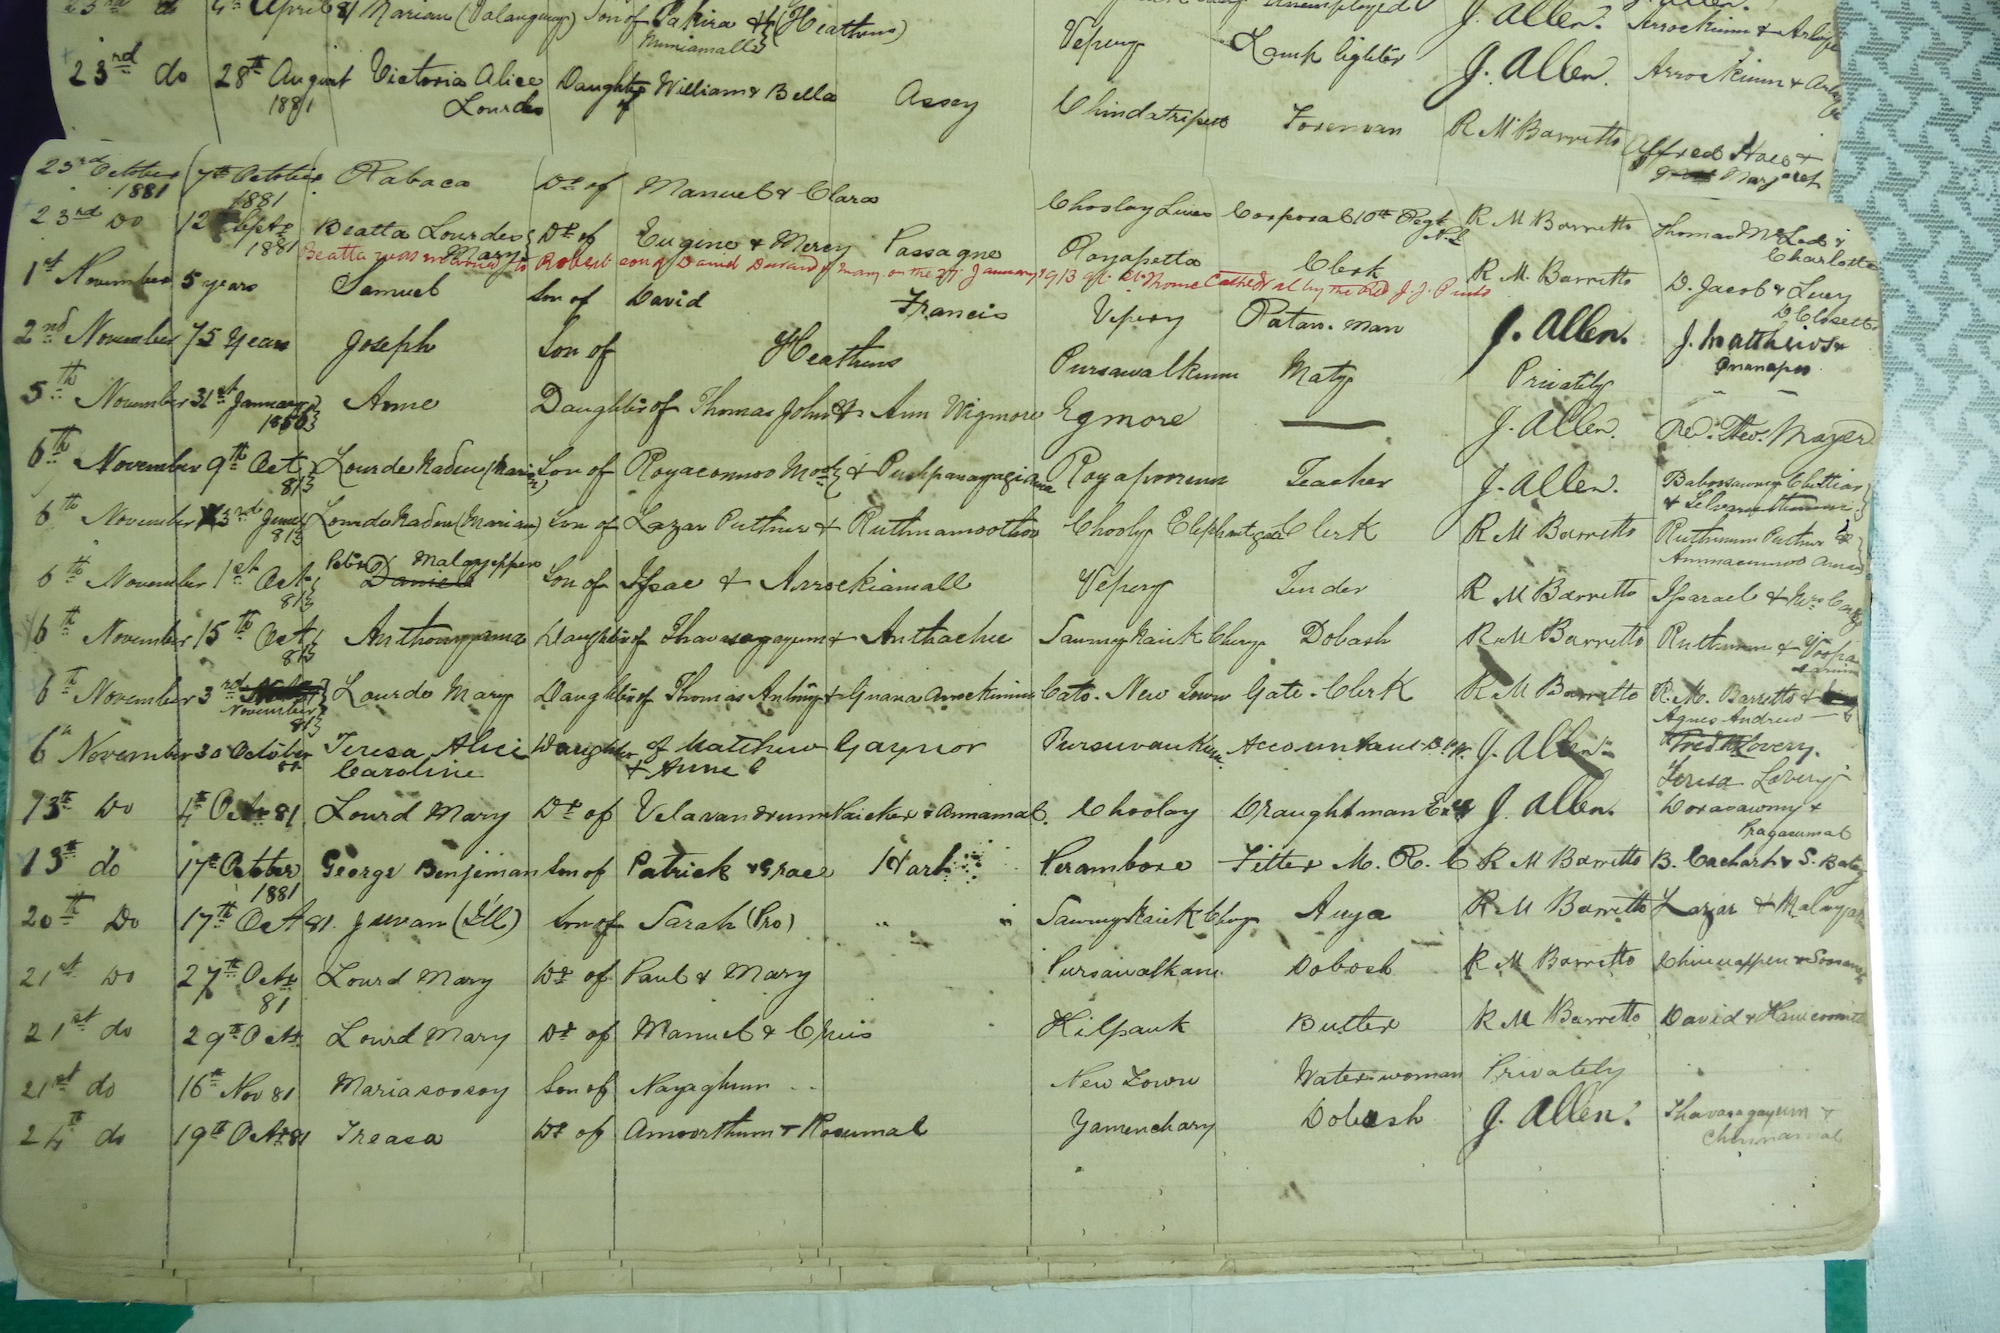 4th April 81 Marian (Palangunga) Son of Pakira & (Heathens) J. Allen.
Muniamall Vepery Lamp lighter J. Allen. Arrockium &
23rd do 28th August 1881 Victoria Alice Lourdes Daughter of William & Bella Assey Chindatripett Foreman R M Barretto Alfred & Margaret
23rd October 1881 7th October 1881 Rabaca Dr of Manuel & Clara Choolay Lines Corporal 10th Regt N.I. R M Barretto Thomas McLeod & Charlotte
23rd Do 12 Septr 1881 Beatta Lourdes Mary Dr of Eugine & Mercy Passagne Royapetta Clerk R M Barretto D. Jacob & Lucy D'Closette
Beatta was married to Robert son of David & Mary on the 27th January 1913 at St Thome Cathedral by the Rev J. J. Pinto
1st November 5 years Samuel Son of David Francis Vepery Patan. man J. Allen. J. Matthews &
2nd November 75 Years Joseph Son of Heathens Pursawalkum Maty Privately
5th November 31st January Anne Daughter of Thomas John & Ann Wigmore Egmore — J. Allen. Rev. Theo. Mayer
6th November 9th Oct 81 Lourde Naden (Marian) Son of Royaconnoo & Pushpanayagiama Royapooram Teacher J. Allen. Babooswamy Chettiar &
6th November 3rd June 81 Lourde Naden (Marian) Son of Lazar Puthur & Ruthnamoothoo Chooly Elephant gate Clerk R M Barretto Ruthnum Puthur &
6th November 1st Oct 81 Peter Malayappen Daniel Son of Issac & Arrockiamall Vepery Tinder R M Barretto Isarael & Mrs
6th November 15th Oct 81 Anthonyama Daughter of Thavasagayum & Anthachie Sawmy Naick Chery Dobash R M Barretto Ruthnum &
6th November 3rd November 81 Lourdo Mary Daughter of Thomas Antony & Gnana Arrockium Cato. New Town Gate. Clerk R M Barretto R. M. Barretto & Agnes Andrew
6th November 30 October Teresa Alice Caroline Daughter of Matthew & Anne Gaynor Pursuvaukum Accountant J. Allen Fredk Lovery. Teresa Lovery
13th Do 4th Octr 81 Lourd Mary Dr of Velavandrum Naicker & Annamal. Choolay Draughtman J. Allen. Dorasawmy & Pragasumal
13th do 17th October 1881 George Benjiman Son of Patrick & Grace Hart Perambore Fitter M. R. C R M Barretto B. Cachart & S. Bate
20th Do 17th Oct 81 Juvan (Ill) Son of Sarah (Pro) " " Sawmy Naick Chery Auya R M Barretto Lazar &
21st Do 27th Octr 81 Lourd Mary Dr of Paul & Mary Pursawalkam Dobosh R M Barretto Chinnappen &
21st do 29th Octr Lourd Mary Dr of Manuel & Kilpauk Butter R M Barretto David &
21st do 16th Nov 81 Mariasoosoy Son of Nayaghum New Town Water woman Privately
24th do 19th Octr 81 Treasa Dr of Amoorthum & Rosumal Yamenchary Dobash J. Allen. Thavasagayum & Chinnamal